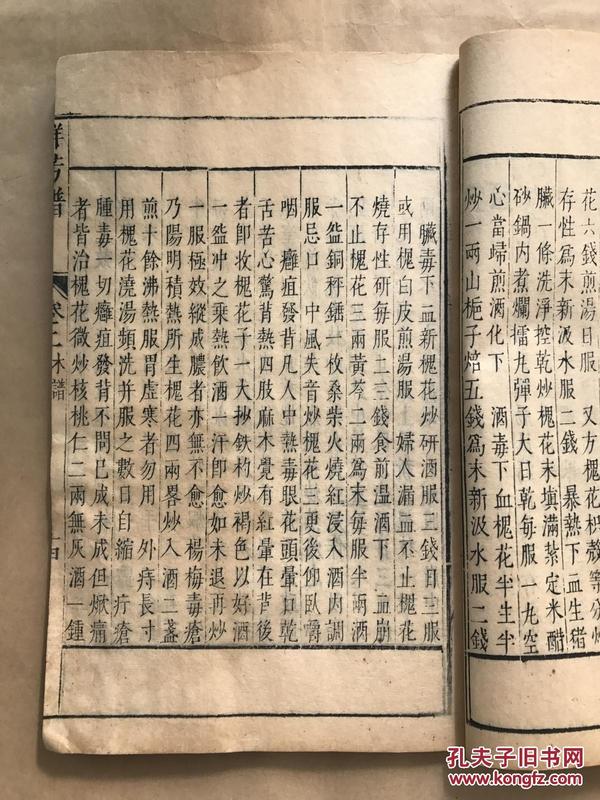 花六錢煎湯日服　又方槐花枳殼等分炒
存性爲末新汲水服二錢　暴熱下血生猪
臟一條洗淨控乾炒槐花末填滿紮定米醋
砂鍋內煮爛擂九彈子大日乾每服一九空
心當歸煎酒化下　酒毒下血槐花半生半
炒一兩山梔子焙五錢爲末新汲水服二錢
臟毒下血新槐花炒研酒服三錢日三服
或用槐白皮煎湯服　婦人漏血不止槐花
燒存性研每服二三錢食前溫酒下　血崩
不止槐花三兩黃芩二兩爲末每服半兩酒
一盌銅秤錘一枚桑柴火燒紅浸入酒內調
服忌口　中風失音炒槐花三更後仰臥嚼
咽　癰疽發背凡人中熱毒眼花頭暈口乾
舌苦心驚背熱四肢麻木覺有紅暈在背後
者卽收槐花子一大抄鐵杓炒褐色以好酒
一盌冲之乘熱飲酒一汗卽愈如未退再炒
一服極效縱成膿者亦無不愈　楊梅毒瘡
乃陽明積熱所生槐花四兩畧炒入酒二盞
煎十餘沸熱服胃虛寒者勿用　外痔長寸
用槐花澆湯頻洗并服之數日自縮　疔瘡
腫毒一切癰疽發背不問已成未成但焮痛
者皆治槐花微炒核桃仁二兩無灰酒一鍾
群芳譜　卷二木譜　十四
孔夫子旧书网
www.kongfz.com